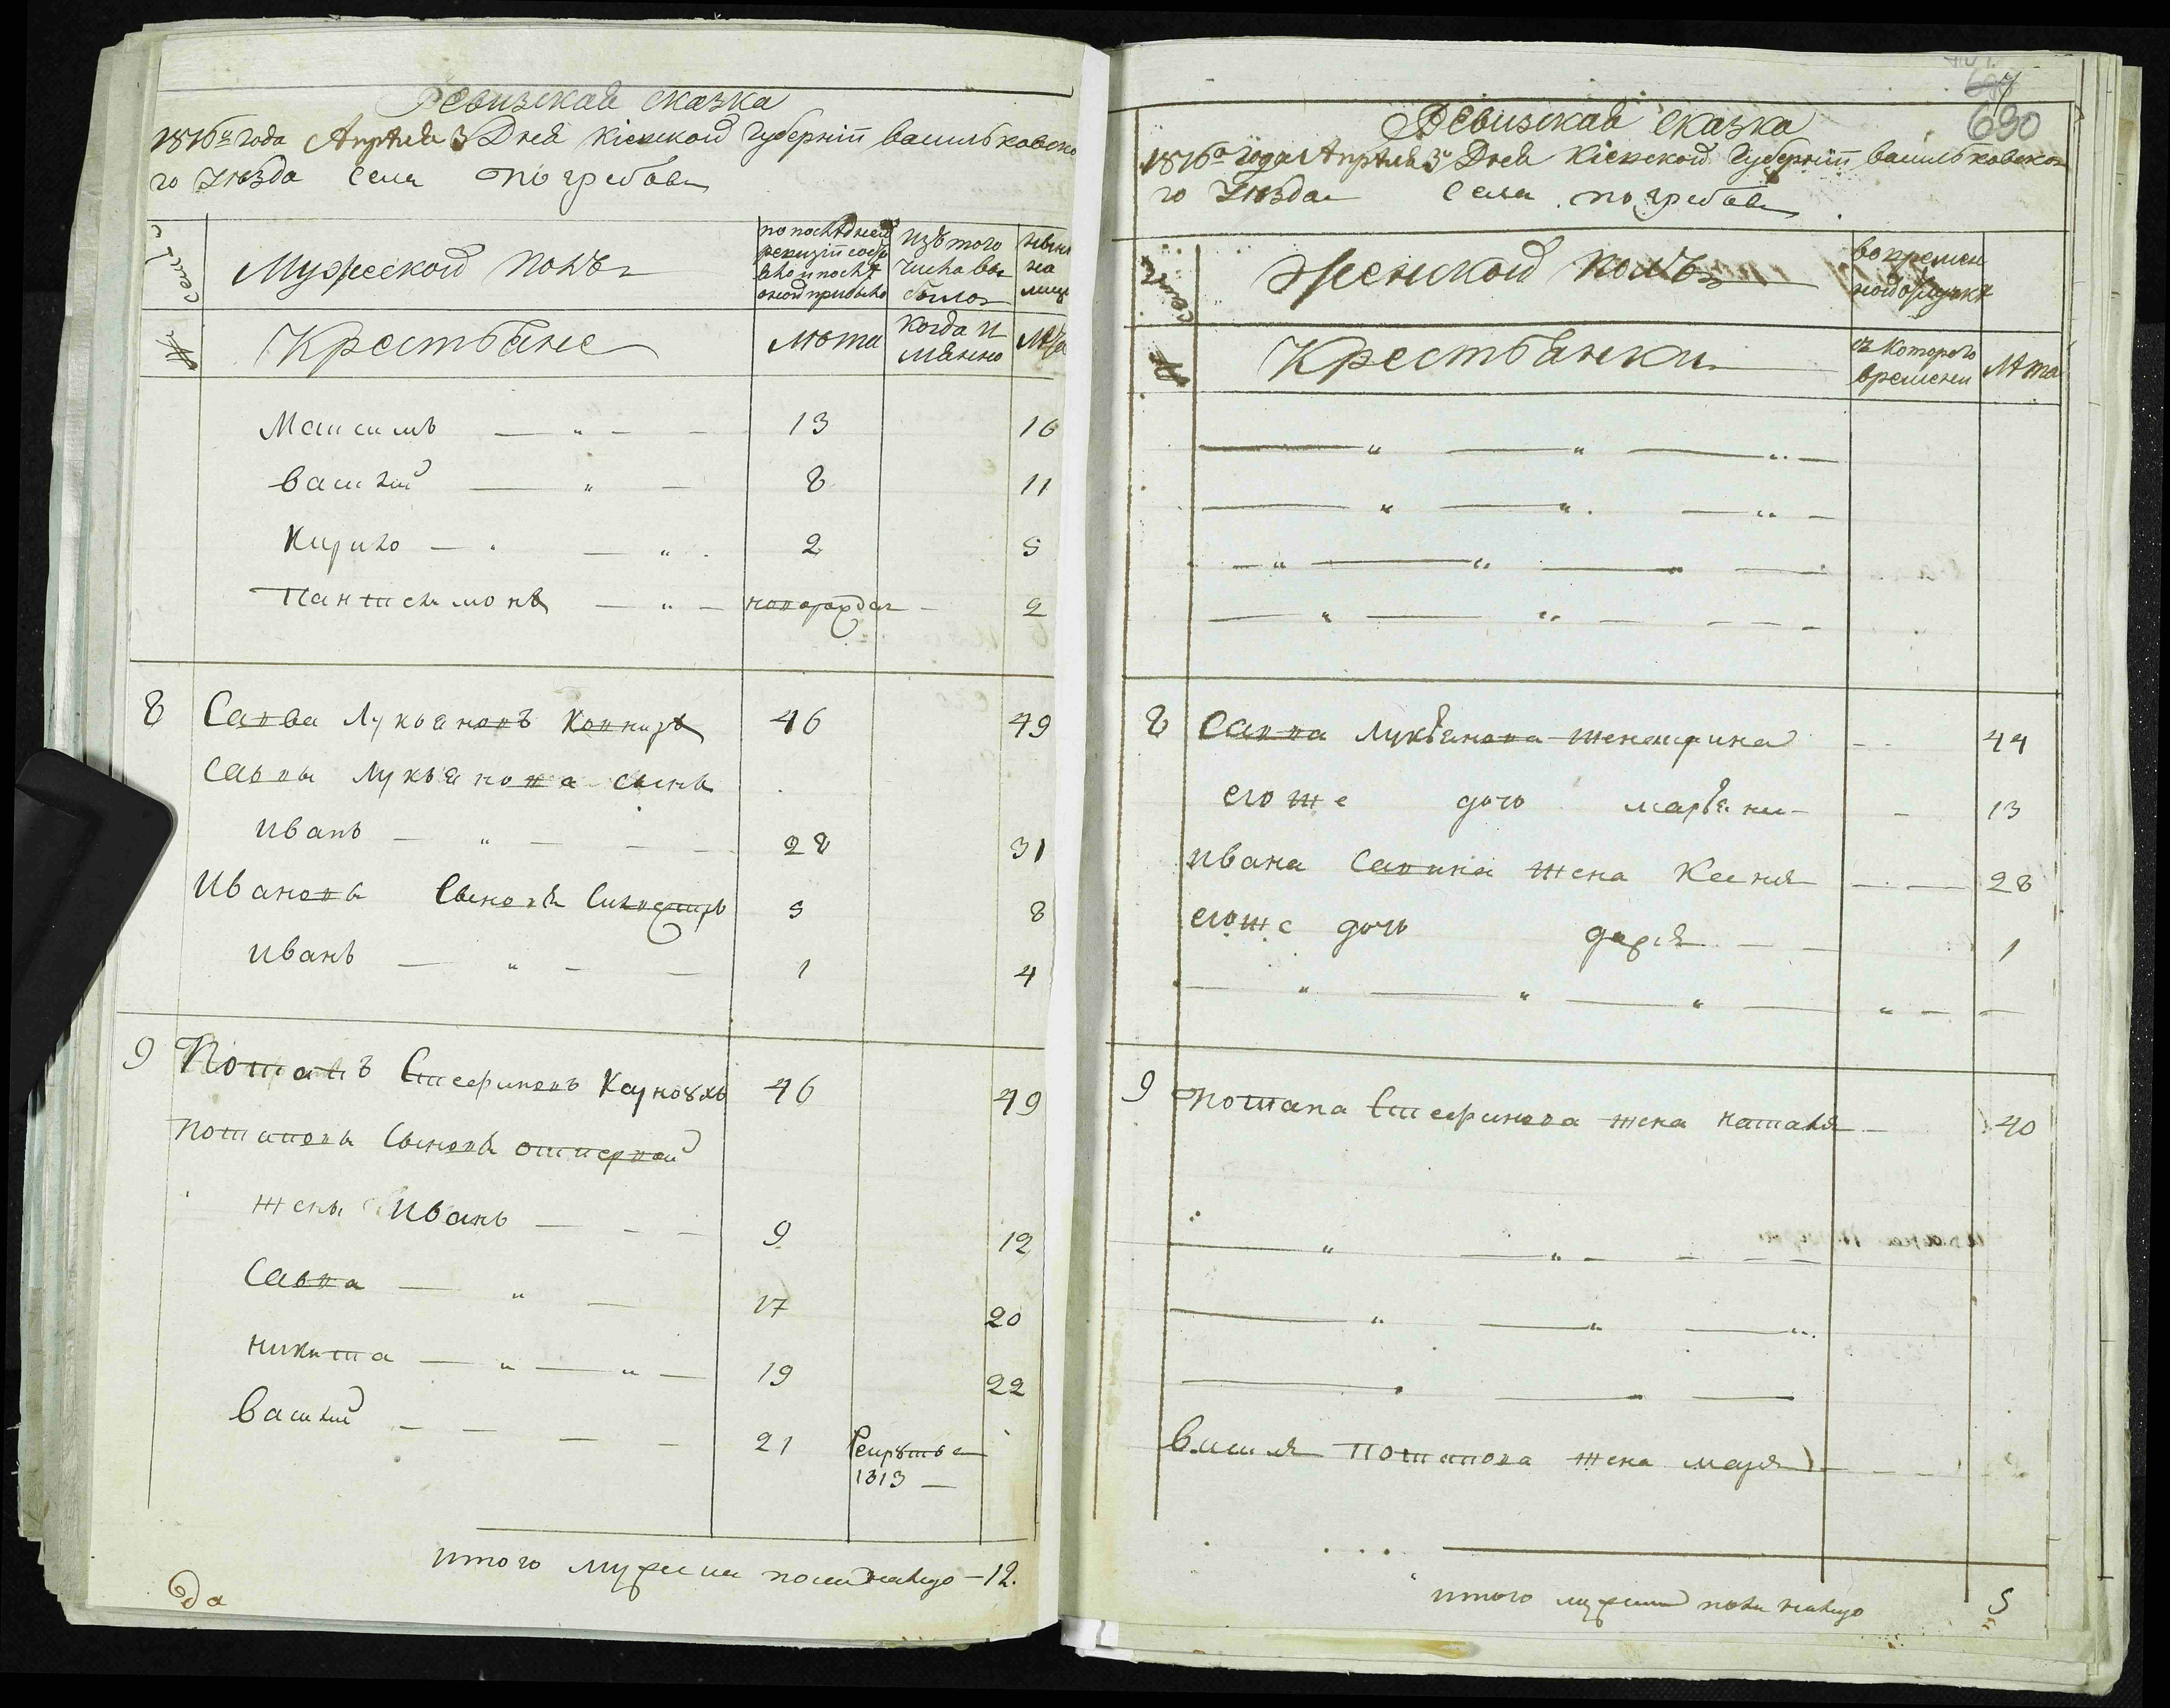 Ревизская сказка
1816го года Апрѣля 3 Дня Кіевской Губерніи васильковско
го Уѣзда Села Погребовъ
№ семей
Мужеской полъ
по последней ревизіи состояло и после оной прибыло
Изъ того числа выбыло
ныне на лице
Крестьяне
Лѣта
когда именно
Лѣта
Максимъ 13 16
василій 8 11
Кирило 2 5
Пантелимонъ новорожден 2
8 Савва Лукьяновъ 46 49
Саввы Лукьянова сынъ
Иванъ 28 31
Ивановы Сыновья Сильвестръ 5 8
Иванъ 1 4
9 Потапъ 46 49
Потаповы Сыновья отпервой
жены Иванъ 9 12
Савва 17 20
Никита 19 22
василій 21 Рекрутъ
1813
Итого мужеска полу налицо 12.
да
690
Ревизская сказка
1816го года Апрѣля 3 Дня Кіевской Губерніи васильковско
го Уѣзда Села погребовъ
№ семей
Женской полъ
во временной отлучке
Крестьянки
съ которого времени
Лѣта
8 Савва Лукьянова жена 44
его же дочь марьяна 13
Ивана Савина жена Ксения 28
егоже дочь дария 1
9 Потапа жена наталя 40
василя потапова жена маря
итого полу налицо 5